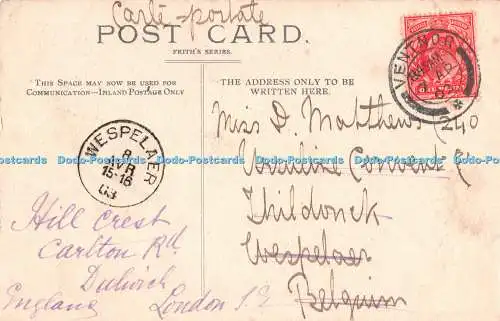 Carte-postale
POST CARD.
FRITH'S SERIES.
THIS SPACE MAY NOW BE USED FOR
COMMUNICATION—INLAND POSTAGE ONLY
THE ADDRESS ONLY TO BE
WRITTEN HERE.
VENTNOR
WESPELAER
8
AVR
15-16
Miss D Matthews 240
Ursuline Convent
Thildonck
Wespelaer
Belgium
Hill Crest
Carlton Rd
Dulwich
London S.E
England
Dodo-Postcards Dodo-Postcards Dodo-Postcards Dodo-Postcards Dodo-Postcards